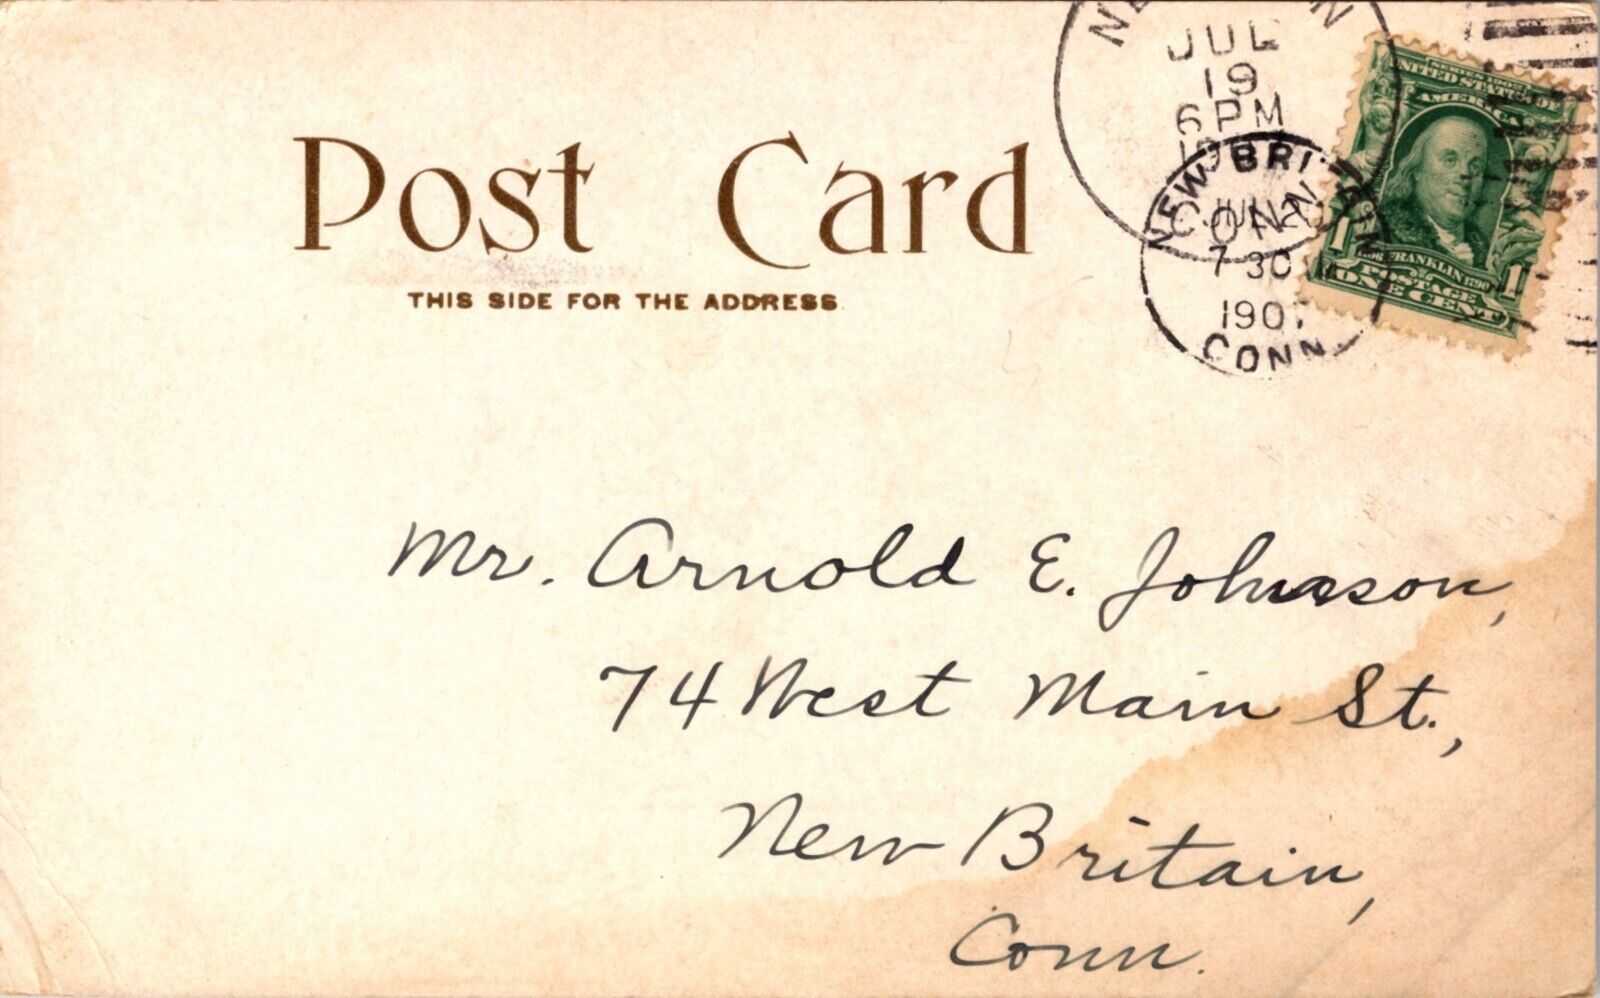 Post Card
THIS SIDE FOR THE ADDRESS
JUL
19
6 PM
CONN
NEW BRITAIN
JUL 20
7 30
190
CONN.
SERIES 1902
UNITED STATES OF
AMERICA
1706 FRANKLIN 1790
1 POSTAGE 1
ONE CENT
Mr. Arnold E. Johnson,
74 West Main St.,
New Britain,
Conn.